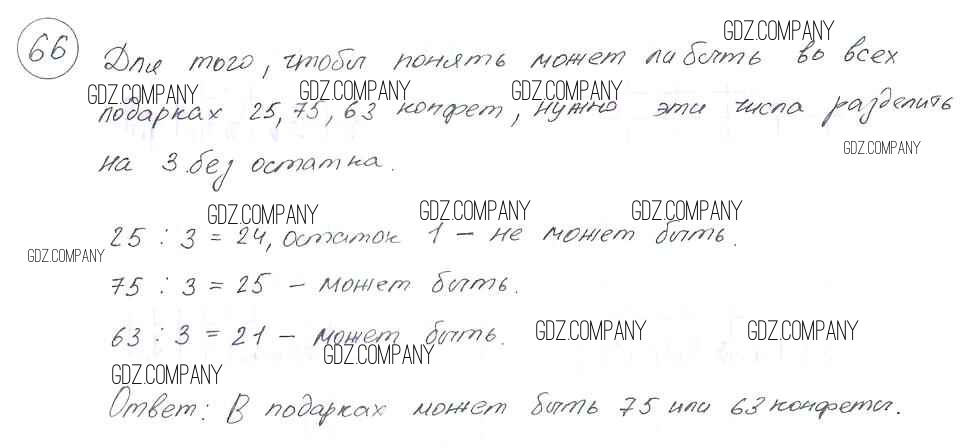 66
GDZ.COMPANY
Для того, чтобы понять может ли быть во всех
GDZ.COMPANY GDZ.COMPANY GDZ.COMPANY
подарках 25, 75, 63 конфет, нужно эти числа разделить
GDZ.COMPANY
на 3 без остатка.
GDZ.COMPANY GDZ.COMPANY GDZ.COMPANY
25 : 3 = 24, остаток 1 – не может быть.
GDZ.COMPANY
75 : 3 = 25 – может быть.
63 : 3 = 21 – может быть.
GDZ.COMPANY GDZ.COMPANY
GDZ.COMPANY
GDZ.COMPANY
Ответ: В подарках может быть 75 или 63 конфеты.